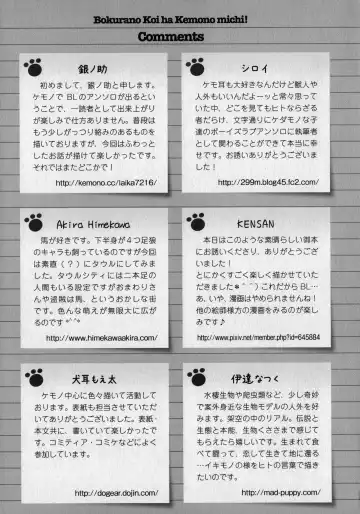 Bokurano Koi ha Kemono michi!
Comments
銀ノ助
初めまして、銀ノ助と申します。
ケモノで BL のアンソロが出るとい
うことで、一読者として出来上がり
が楽しみで仕方ありません。普段は
もう少しがっつり絡みのあるものを
描いておりますが、今回はふわっと
したお話が描けて楽しかったです。
それではまたどこかで！
http://kemono.cc/laika7216/
シロイ
ケモ耳も大好きなんだけど獣人や
人外もいいんだよーッと常々思って
いた中、どこを見てもヒトならざる
者だらけ、文字通りにケダモノな子
達のボーイズラブアンソロに執筆者
として関わることができて本当に幸
せです。お誘いありがとうございま
した！
http://299m.blog45.fc2.com/
Akira Himekawa
馬が好きです。下半身が4つ足狼
のキャラも飼っているのですが今回
は素直（？）にタウルにしてみまし
た。タウルシティには二本足の
人間もいる設定ですがおまわりさん
や盗賊は馬、というおかしな街
です。色んな萌えが無限大に広が
るのです *^^*
http://www.himekawaakira.com/
KENSAN
本日はこのような素晴らしい御本
にお誘いくださり、ありがとうござい
ます！
とにかくすごく楽しく描かせていた
だきました＊＾＾）これだから BL…
あ、いや、漫画はやめられませんね！
他の絵師様方の漫画をみるのが楽
しみです♪
http://www.pixiv.net/member.php?id=645884
犬耳もえ太
ケモノ中心に色々描いて活動して
おります。表紙も担当させていただ
いてありがとうございました。表紙・
本文共に、書いていて楽しかったで
す。コミティア・コミケなどによく
参加しています。
http://dogear.dojin.com/
伊達なつく
水棲生物や爬虫類など、少し奇妙
で案外身近な生物モデルの人外を好
みます。架空の中のリアル。伝説と
生態と本能。生き物くささまで感じて
もらえたら嬉しいです。生まれて食
べて闘って、恋して生きて地に還る
…イキモノの様をヒトの言葉で描き
たいのです。
http://mad-puppy.com/